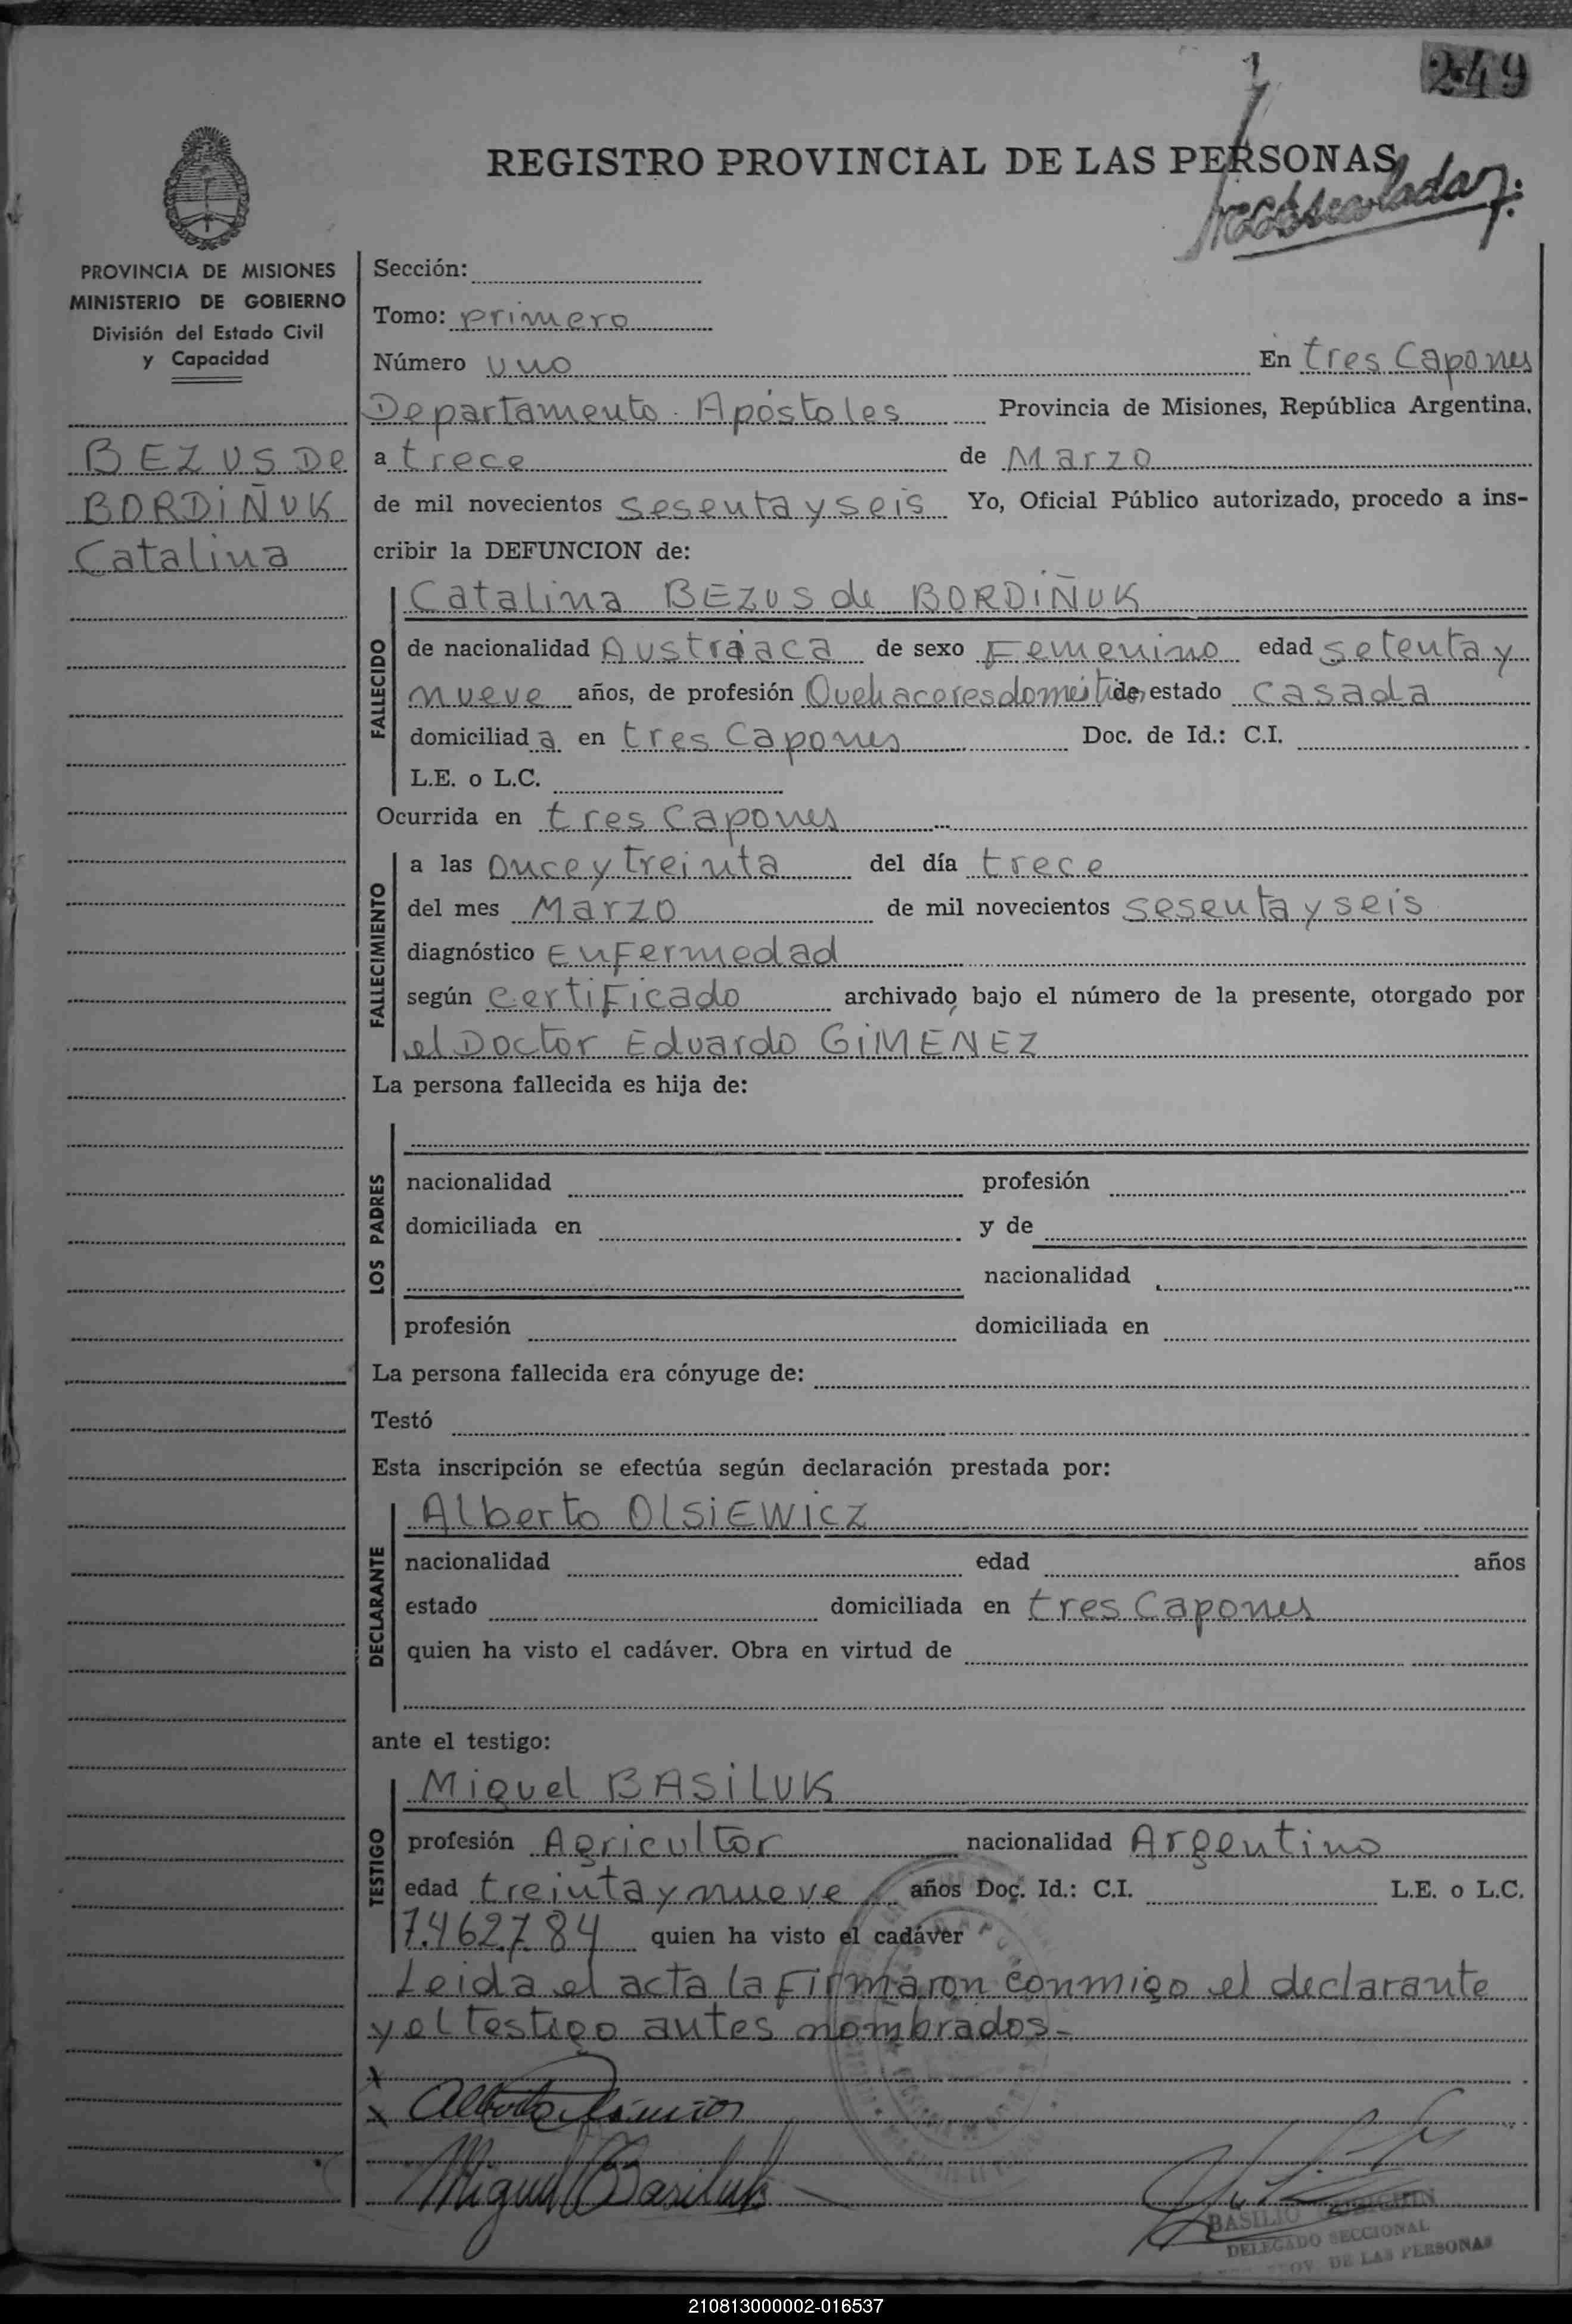 249
1
REGISTRO PROVINCIAL DE LAS PERSONAS
PROVINCIA DE MISIONES
MINISTERIO DE GOBIERNO
División del Estado Civil
y Capacidad
BEZUS DE
BORDIÑUK
Catalina
Sección:
Tomo: primero
Número uno En tres Capones
Departamento Apóstoles Provincia de Misiones, República Argentina,
a trece de Marzo
de mil novecientos sesenta y seis Yo, Oficial Público autorizado, procedo a ins-
cribir la DEFUNCION de:
FALLECIDO
Catalina BEZUS de BORDIÑUK
de nacionalidad Austriaca de sexo Femenino edad setenta y
nueve años, de profesión Quehaceres domésticos de estado casada
domiciliad a en tres Capones Doc. de Id.: C.I.
L.E. o L.C.
Ocurrida en tres Capones
FALLECIMIENTO
a las once y treinta del día trece
del mes Marzo de mil novecientos sesenta y seis
diagnóstico Enfermedad
según certificado archivado bajo el número de la presente, otorgado por
el Doctor Eduardo GIMENEZ
La persona fallecida es hija de:
LOS PADRES
nacionalidad profesión
domiciliada en y de
nacionalidad
profesión domiciliada en
La persona fallecida era cónyuge de:
Testó
Esta inscripción se efectúa según declaración prestada por:
DECLARANTE
Alberto OLSIEWICZ
nacionalidad edad años
estado domiciliada en tres Capones
quien ha visto el cadáver. Obra en virtud de
ante el testigo:
TESTIGO
Miguel BASILUK
profesión Agricultor nacionalidad Argentino
edad treinta y nueve años Doc. Id.: C.I. L.E. o L.C.
7.462.784 quien ha visto el cadáver
Leida el acta la firmaron conmigo el declarante
y el testigo antes nombrados.-
x
x Alberto
Miguel Basiluk
BASILIO
DELEGADO SECCIONAL
PROV. DE LAS PERSONAS
210813000002-016537